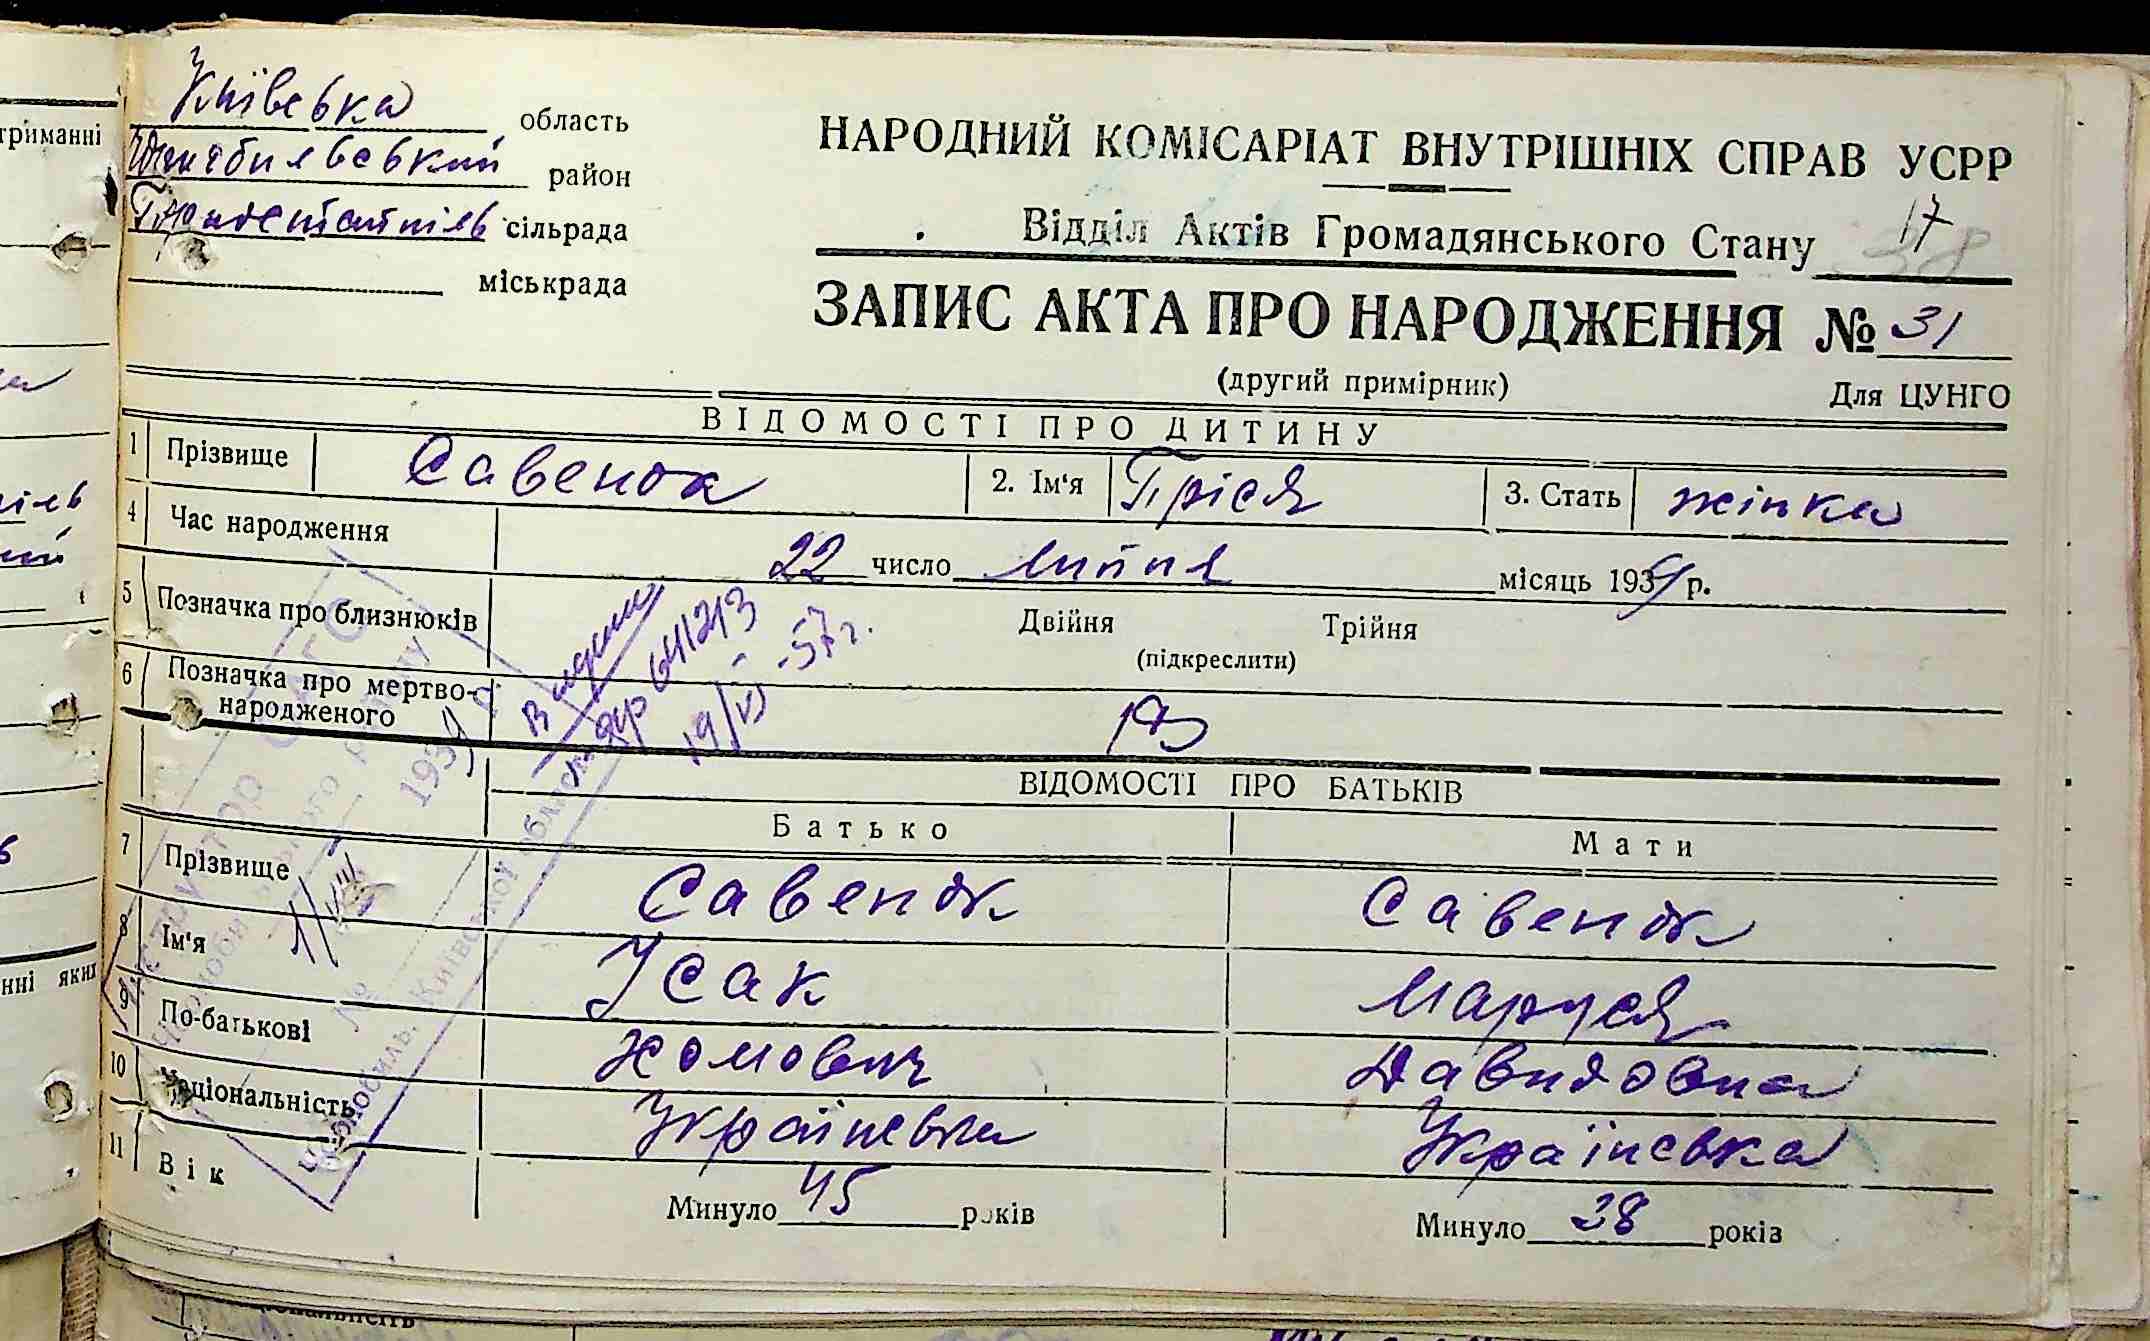 Київська область
Чорнобильвський район
сільрада
міськрада
НАРОДНИЙ КОМІСАРІАТ ВНУТРІШНІХ СПРАВ УСРР
Відділ Актів Громадянського Стану 17 38
ЗАПИС АКТА ПРО НАРОДЖЕННЯ № 31
(другий примірник) Для ЦУНГО
ВІДОМОСТІ ПРО ДИТИНУ
1 Прізвище Савенок 2. Ім'я Пріся 3. Стать жінка
4 Час народження 22 число липня місяць 1934 р.
5 Позначка про близнюків Двійня Трійня
(підкреслити)
6 Позначка про мертво-
народженого
641213
19/VI -57г.
1934
ВІДОМОСТІ ПРО БАТЬКІВ
Батько Мати
7 Прізвище Савенок Савенок
8 Ім'я Усак Маруся
9 По-батькові Хомович Давидовна
10 Національність Українська Українська
11 Вік Минуло 45 років Минуло 38 років
триманні
нні яких